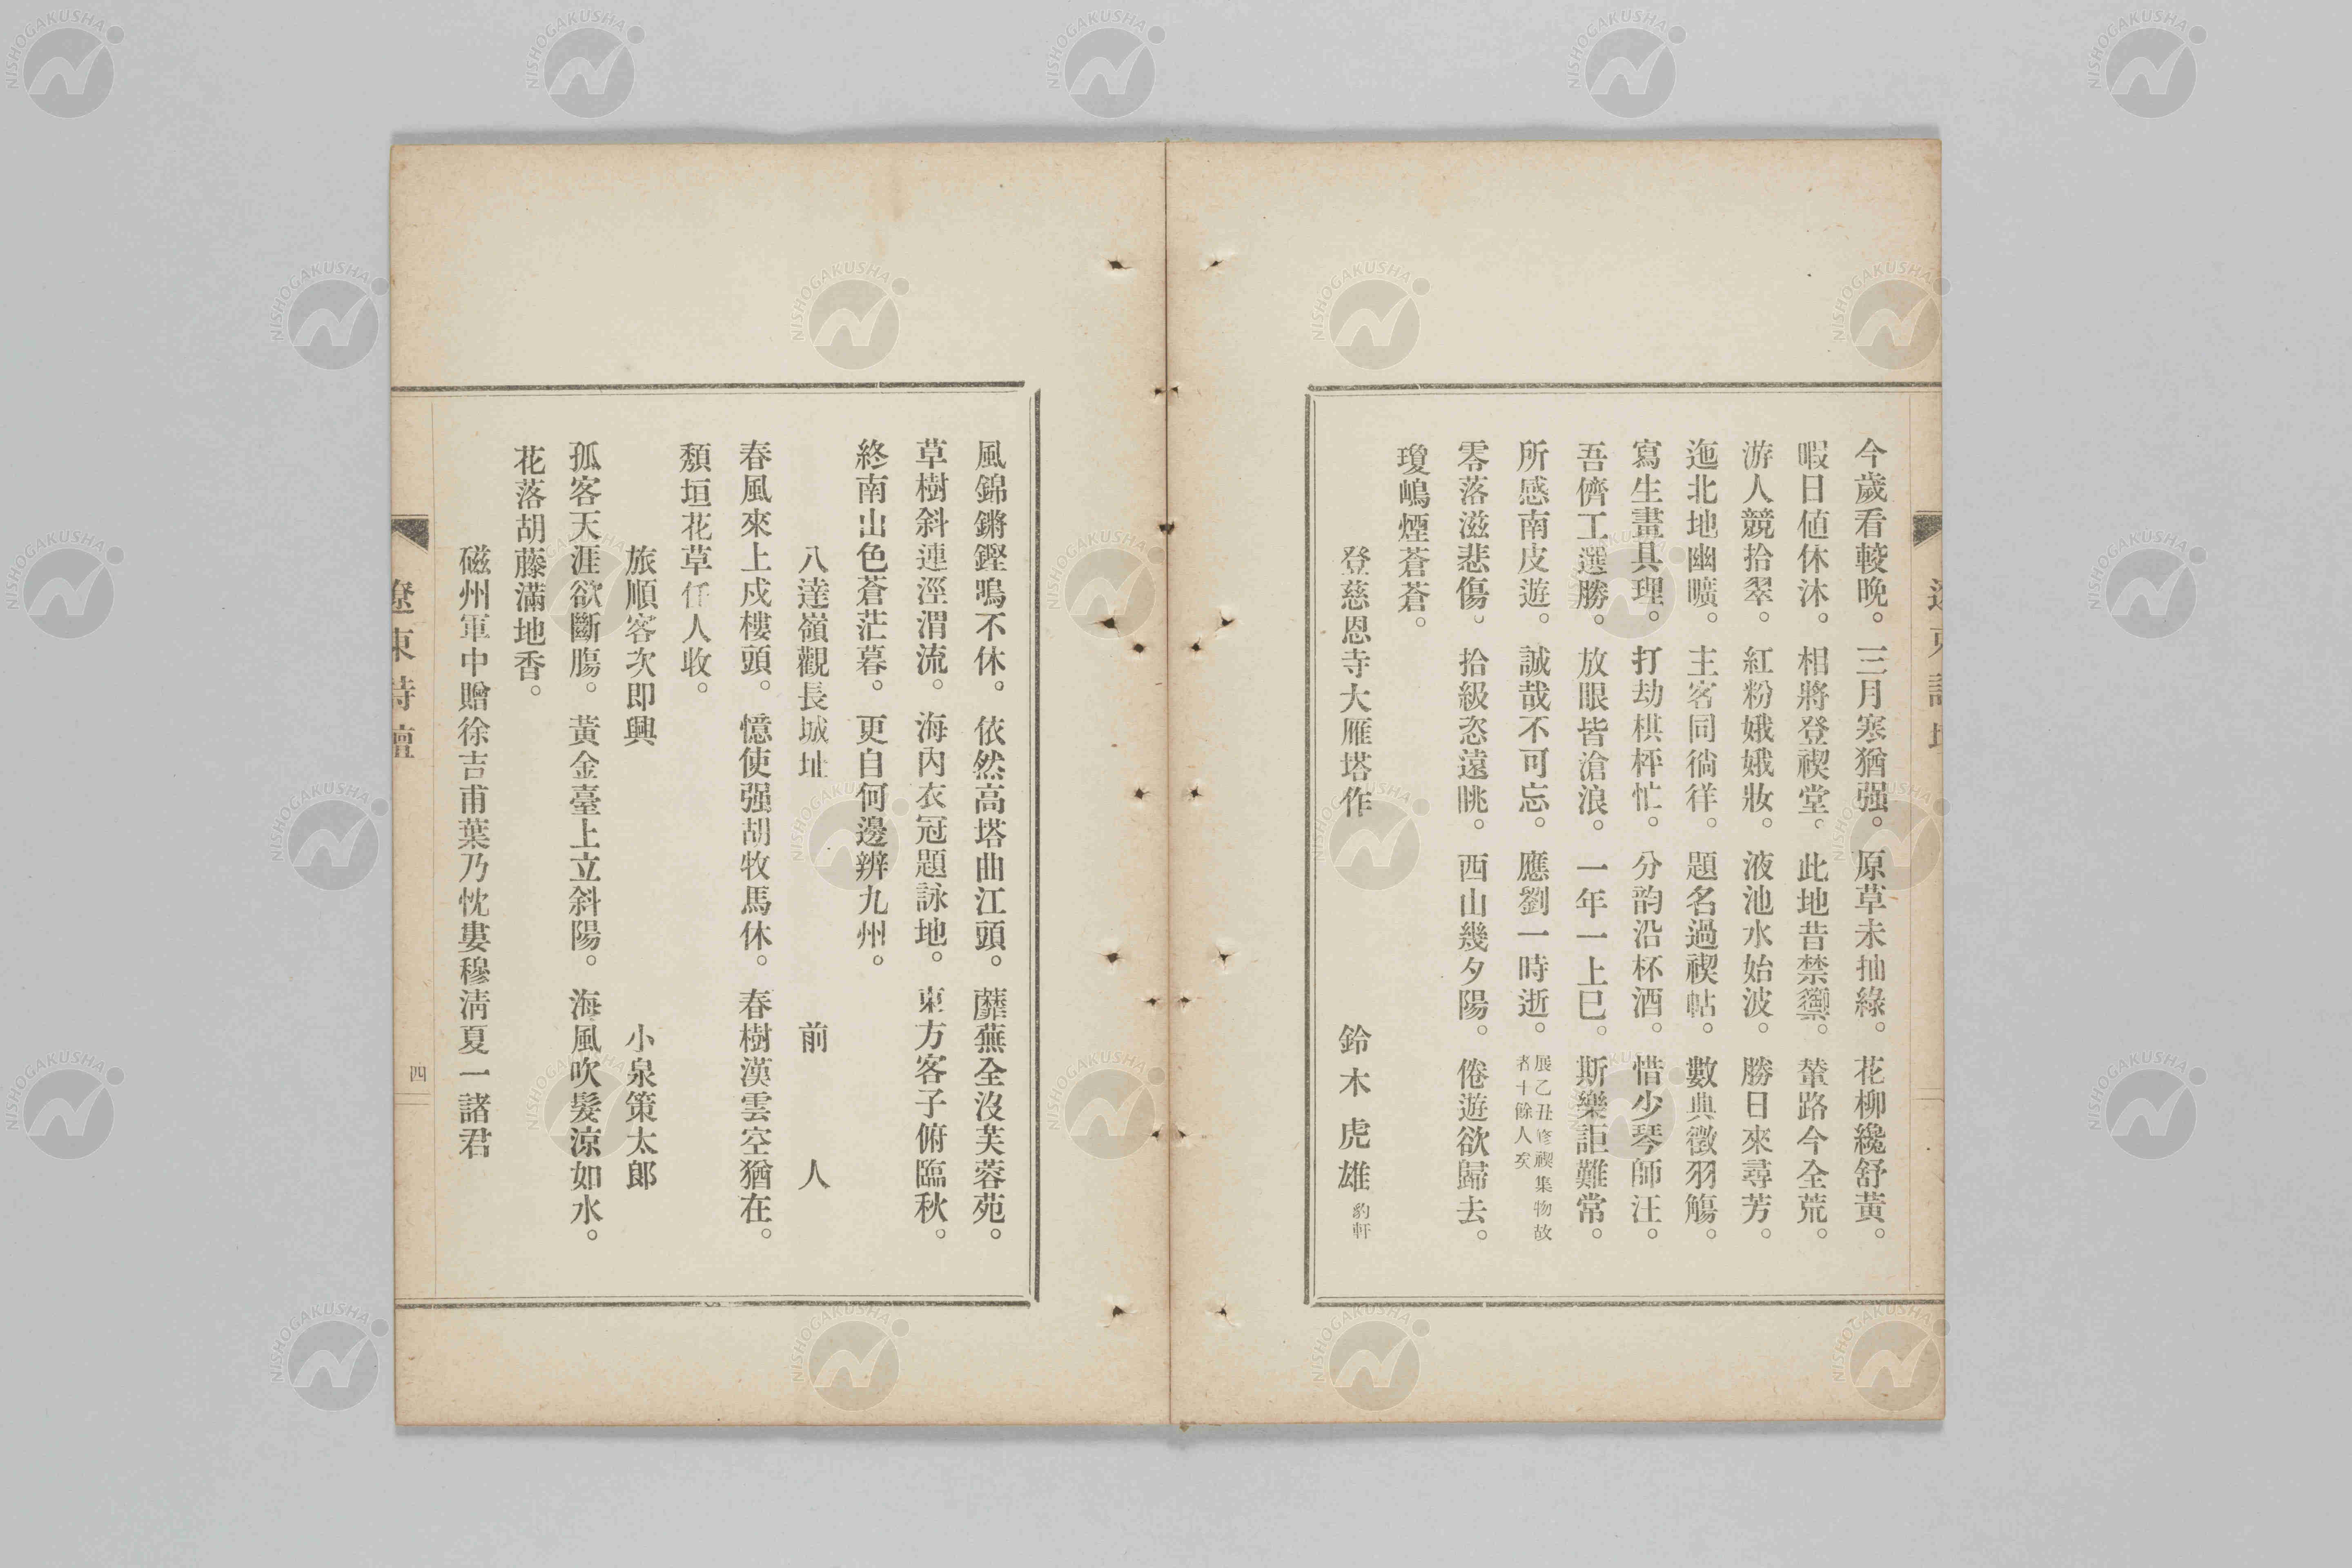 今歲看較晩。三月寒猶强。原草未抽綠。花柳纔舒黃。
暇日値休沐。相將登禊堂。此地昔禁籞。輦路今全荒。
游人競拾翠。紅粉娥娥妝。液池水始波。勝日來尋芳。
迤北地幽曠。主客同徜徉。題名過禊帖。數典徵羽觴。
寫生畫具理。打劫棋枰忙。分韵沿杯酒。惜少琴師汪。
吾儕工選勝。放眼皆滄浪。一年一上巳。斯樂詎難常。
所感南皮遊。誠哉不可忘。應劉一時逝。展乙丑修禊集物故者十餘人矣
零落滋悲傷。拾級恣遠眺。西山幾夕陽。倦遊欲歸去。
瓊嶋煙蒼蒼。
登慈恩寺大雁塔作　鈴木虎雄豹軒
風錦鏘鏗鳴不休。依然高塔曲江頭。蘼蕪全沒芙蓉苑。
草樹斜連涇渭流。海內衣冠題詠地。東方客子俯臨秋。
終南山色蒼茫暮。更自何邊辨九州。
八達嶺觀長城址　前人
春風來上戍樓頭。憶使强胡牧馬休。春樹漢雲空猶在。
頽垣花草任人收。
旅順客次即興　小泉策太郎
孤客天涯欲斷膓。黃金臺上立斜陽。海風吹髮涼如水。
花落胡藤滿地香。
磁州軍中贈徐吉甫葉乃忱婁穆淸夏一諸君
遼東詩壇
四
NISHOGAKUSHA